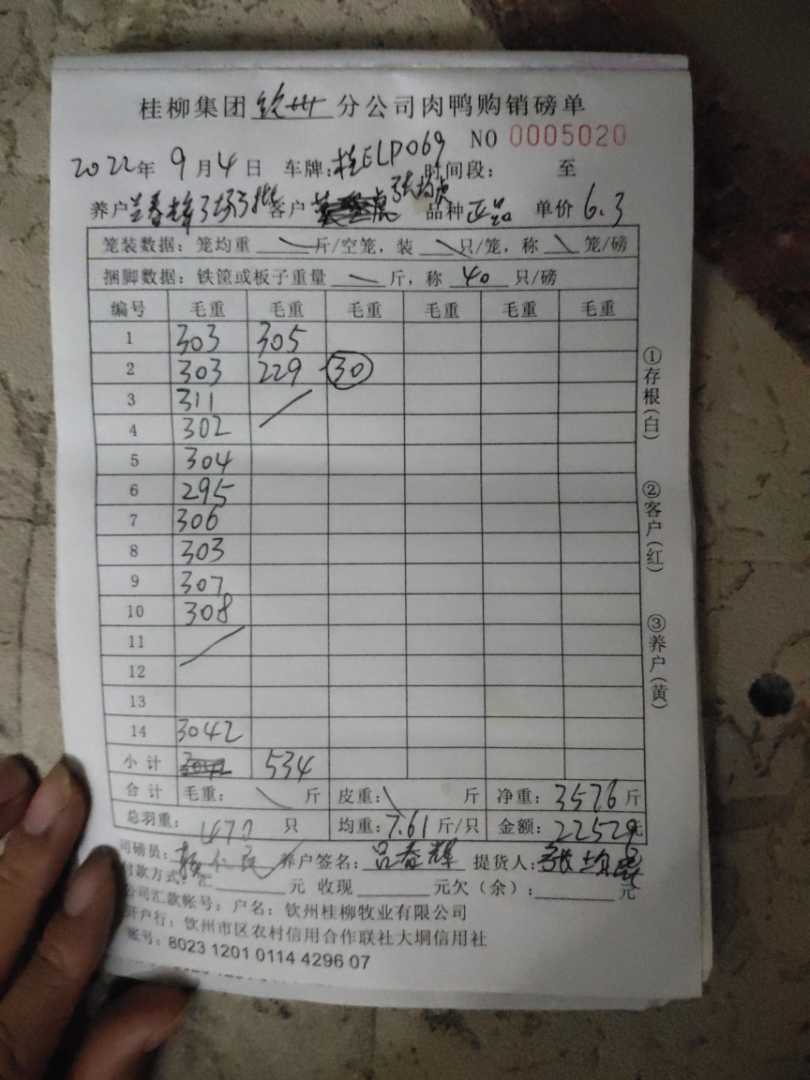 桂柳集团 钦州 分公司肉鸭购销磅单
NO 0005020
2022年 9月4日 车牌:桂ELP069 时间段: 至
养户 春辉3场3批 客户 张均虎 品种 正品 单价 6.3
笼装数据:笼均重 斤/空笼,装 只/笼,称 笼/磅
捆脚数据:铁筐或板子重量 斤,称 40 只/磅
编号 毛重 毛重 毛重 毛重 毛重 毛重
1 303 305
2 303 229 30
3 311
4 302
5 304
6 295
7 306
8 303
9 307
10 308
11
12
13
14 3042
小计 534
合计 毛重: 斤 皮重: 斤 净重:3576斤
总羽重: 470 只 均重:7.61斤/只 金额:22529元
司磅员: 养户签名: 吕春辉 提货人:张均虎
付款方式:汇 元 收现 元欠(余): 元
公司汇款帐号:户名:钦州桂柳牧业有限公司
开户行:钦州市区农村信用合作联社大垌信用社
帐号:8023 1201 0114 4296 07
①存根(白)
②客户(红)
③养户(黄)